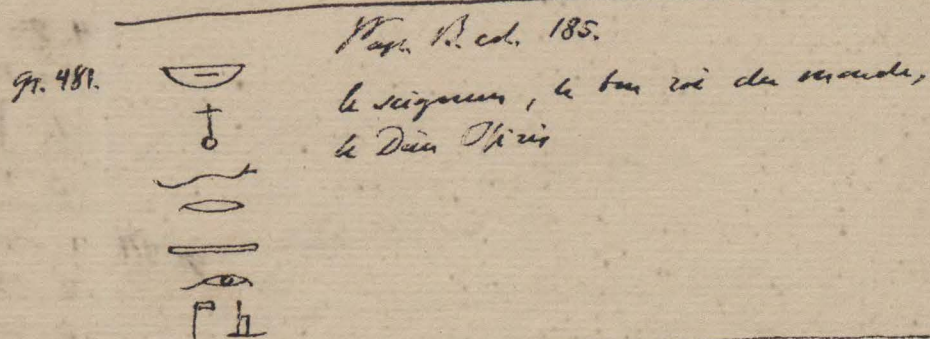 Pap. R. col. 185.
gr. 481.
le seigneur, le bon roi du monde,
le Dieu Osiris